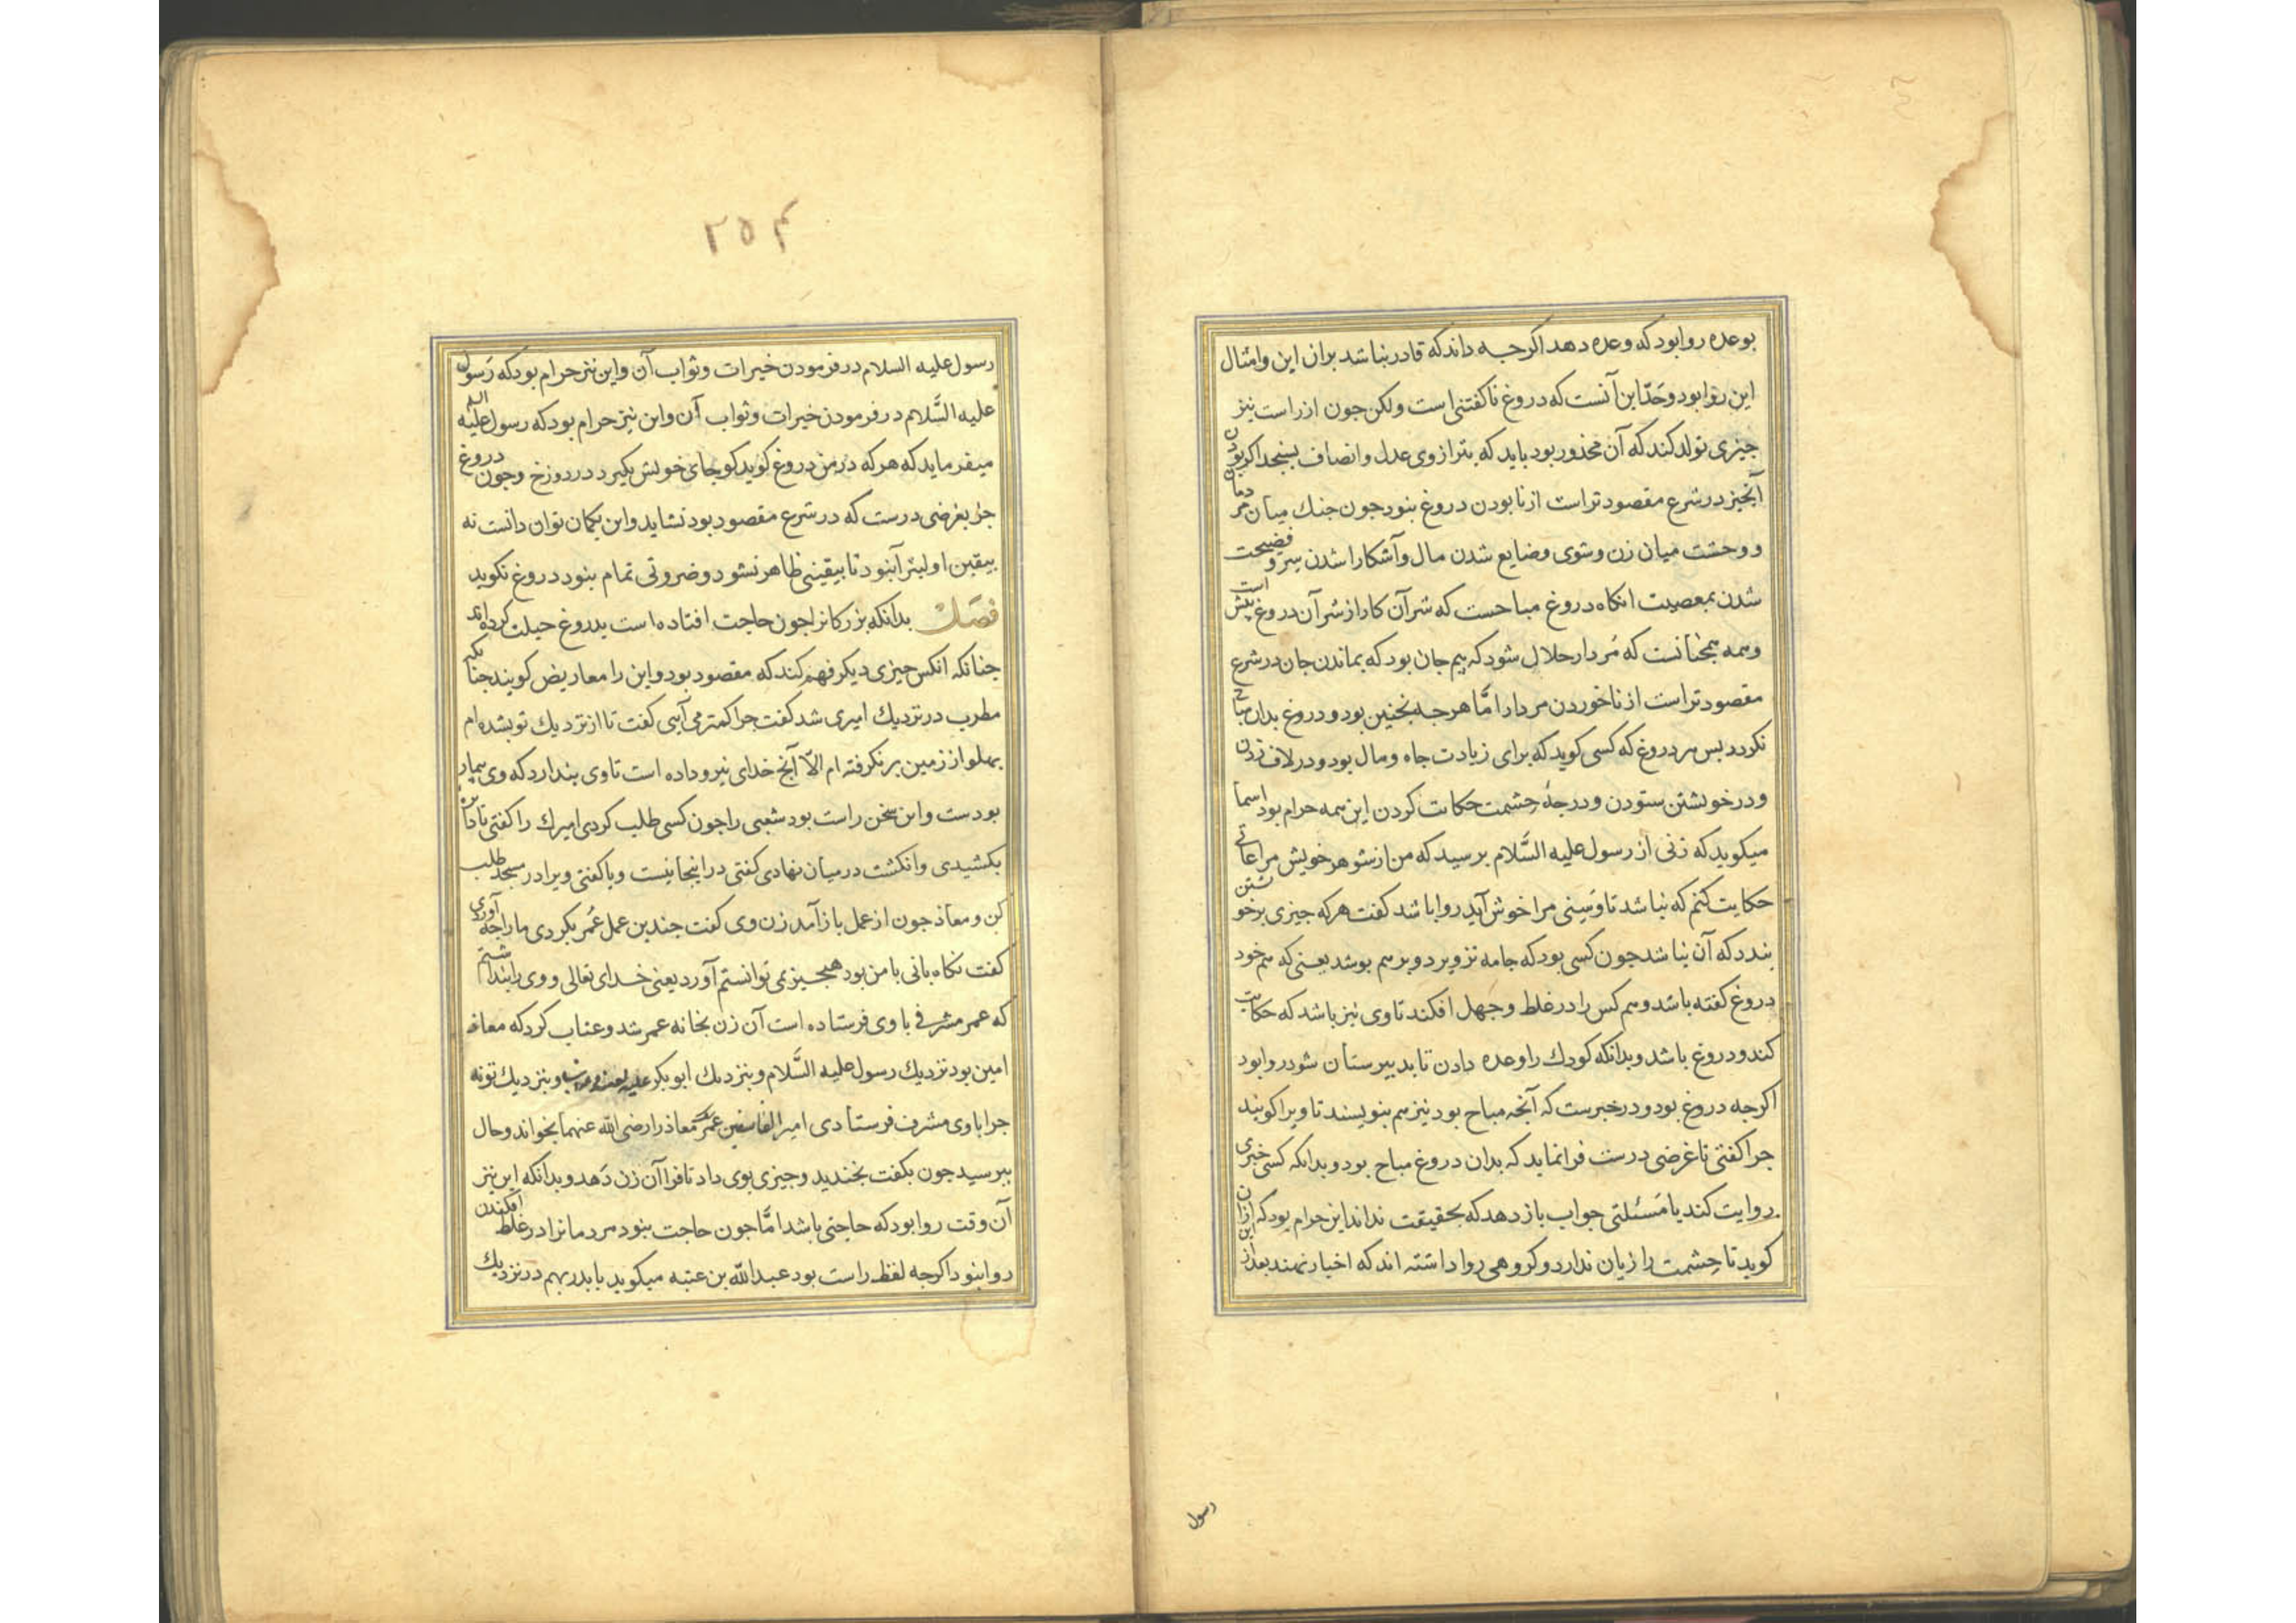 بوعده روا بود که وعده دهد اکرجه داند که قادر نباشد بران این وامثال
این روا بود وحَدّ این آنست که دروغ ناکفتنی است ولکن جون از راست نیز
جیزی تولد کند که آن محذور بود باید که بترازوی عدل وانصاف بسنجد اکر بودن
آنجیز در شرع مقصودتر است از نابودن دروغ بنود جون جنك میان مردمان
ووحشت میان زن وشوی وضایع شدن مال وآشکارا شدن سر وفضیحت
شدن بمعصیت انکاه دروغ مباحست که شر آن کار از شر آن دروغ بیش است
وهمه همجنانست که مُردار حلال شود که بیم جان بود که بماندن جان در شرع
مقصودتر است از ناخوردن مردار امّا هرجه نجنین بود ودروغ بدان مباح
نکردد بس هر دروغ که کسی کوید که برای زیادت جاه ومال بود ودر لاف زدن
ودر خویشتن ستودن ودرجهٔ حِشمت حکایت کردن این همه حرام بود اسما
میکوید که زنی از رسول علیه السَّلام برسید که من از شوهر خویش مراعاتی
حکایت کنم که نباشد تا وسنی مرا خوش آید روا باشد کفت هرکه جیزی برخویشتن
بندد که آن نباشد جون کسی بود که جامه تزویر دوبر هم بوشد یعنی که هم خود
دروغ کفته باشد وهم کس را در غلط وجهل افکند تا وی نیز باشد که حکایت
کند ودروغ باشد وبدانکه کودك را وعده دادن تا بدبیرستان شود روا بود
اکرجه دروغ بود ودر خبرست که آنجه مباح بود نیز هم بنویسند تا ویرا کویند
جرا کفتی تا غرضی درست فرا نماید که بدان دروغ مباح بود وبدانکه کسی خبری
روایت کند یا مَسئلتی جواب باز دهد که بحقیقت نداند این حرام بود که ازان
کوید تا حِشمت را زیان ندارد وکروهی روا داشته اند که اخبار نهند بعد از این
رسول
۲۵۴
رسول علیه السلام در فرمودن خیرات وثواب آن واین نیز حرام بود که رَسول
علیه السَّلام در فرمودن خیرات وثواب آن واین نیز حرام بود که رسول علیه السلم
میفرماید که هرکه در من دروغ کوید کو جای خویش بکیرد در دوزخ وجون دروغ
جز بغرضی درست که در شرع مقصود بود نشاید واین بکمان توان دانست نه
بیقین اولیتر آنبود تا بیقینی ظاهر نشود وضروتی تمام بنود دروغ نکوید
فصَل بدانکه بزرکانرا جون حاجت افتاده است بدروغ حیلت کرده اند
جنانکه انکس جیزی دیکر فهم کند که مقصود بود واین را معاریض کویند جنانکه
مطرب در نزدیك امیری شد کفت جرا کمتر می آیی کفت تا از نزدیك تو بشده ام
بهلو از زمین بر نکرفته ام الّا آنج خدای نیرو داده است تا وی بندارد که وی بیمار
بودست واین سخن راست بود شعبی را جون کسی طلب کردی امیرك را کفتی تا دایره
بکشیدی وانکشت در میان نهادی کفتی در اینجا نیست ویا کفتی ویرا در مسجد طلب
کن ومعاذ جون از عمل باز آمد زن وی کفت جندین عمل عُمر بکردی ما را جه آوردی
کفت نکاه بانی با من بود هیجیز نمی توانستم آورد یعنی خدای تعالی ووی را بنداشتم
که عمر مشرفی با وی فرستاده است آن زن بخانه عمر شد وعتاب کرد که معاذ
امین بود نزدیك رسول علیه السَّلام وبنزدیك ابوبکر علیه وبنزدیك تو نه
جرا با وی مشرف فرستادی امیر الفاسقین عمر معاذ را رضی الله عنهما بخواند وحال
ببرسید جون بکفت بخندید وجیزی بوی داد تا فرا آن زن دَهد وبدانکه این نیز
آن وقت روا بود که حاجتی باشد امَّا جون حاجت بنود مردمانرا در غلط افکندن
روا بنود اکرجه لفظ راست بود عبدالله بن عتبه میکوید با بدر بهم در نزدیك